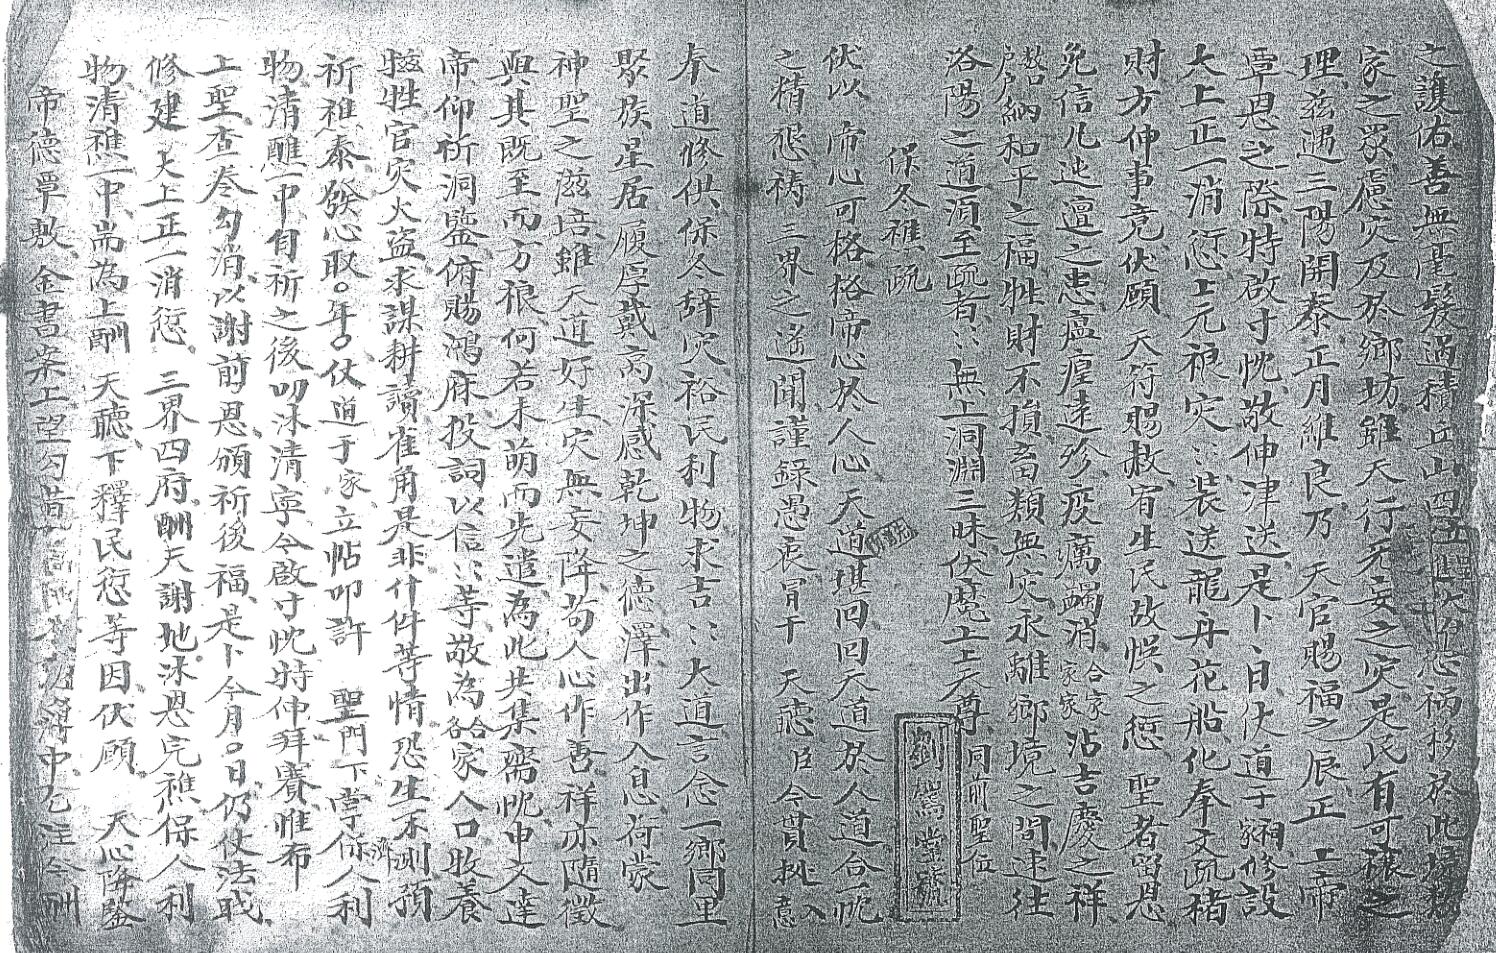 之護佑善無毫髮過積丘山四
家之眾慮災及於鄉坊雖天行無妄之災是民有可禳之
理茲遇三陽開泰正月維良乃 天官賜福之辰正 上帝
覃恩之際特啟寸忱敬伸津送是卜、日伏道于家修設
大上正一消愆上元禳災〻裝送龍舟花船化奉文疏楮
財方伸事竟伏願 天符賜赦宥生民故悞之愆 聖者畱恩
免信凡迍邅之患瘟㾮遠殄疫癘蠲消合家家家沾吉慶之祥
戶戶納和平之福牲財不損畜類無災永離鄉境之間速往
洛陽之道須至疏者〻無上洞淵三昧伏魔上上天尊同前聖位
保冬襍疏
劉
伏以 帝心可格格帝心於人心 天道堪回回天道於人道合一忱
之精懇禱 三界之遙聞謹錄愚衷冒干 天聽臣今貫挑入意
奉道修供保冬辞災裕民利物求吉〻大道言念一鄉同里
聚族星居履厚戴高深感乾坤之德澤出作入息荷蒙
神聖之滋培雖天道好生災無妄降苟人心作善祥亦隨徵
與其既至而方禳何若未萌而先遣為此共集齋忱申文達
帝仰祈洞鑒俯賜鴻庥投詞以信〻等敬為合各家人口牧養
牲官災火盜求謀耕讀雀角是非什件等情恐生不測預
祈襍泰發心取○年○伏道于家立帖叩許 聖門下掌保人利濟
物清醮一中自祈之後叨沐清寧今啟寸忱特伸拜賽惟布
上聖查卷勾消以謝前恩頒祈後福是卜今月○日仍仗法職
修建 大上正一消愆 三界四府酬天謝地沐恩完襍保人利
物清襍一中尚為上酬 天聽下釋民愆等因伏願 天心降鑒
帝德覃敷金書案上望勾 簿中乞注今酬